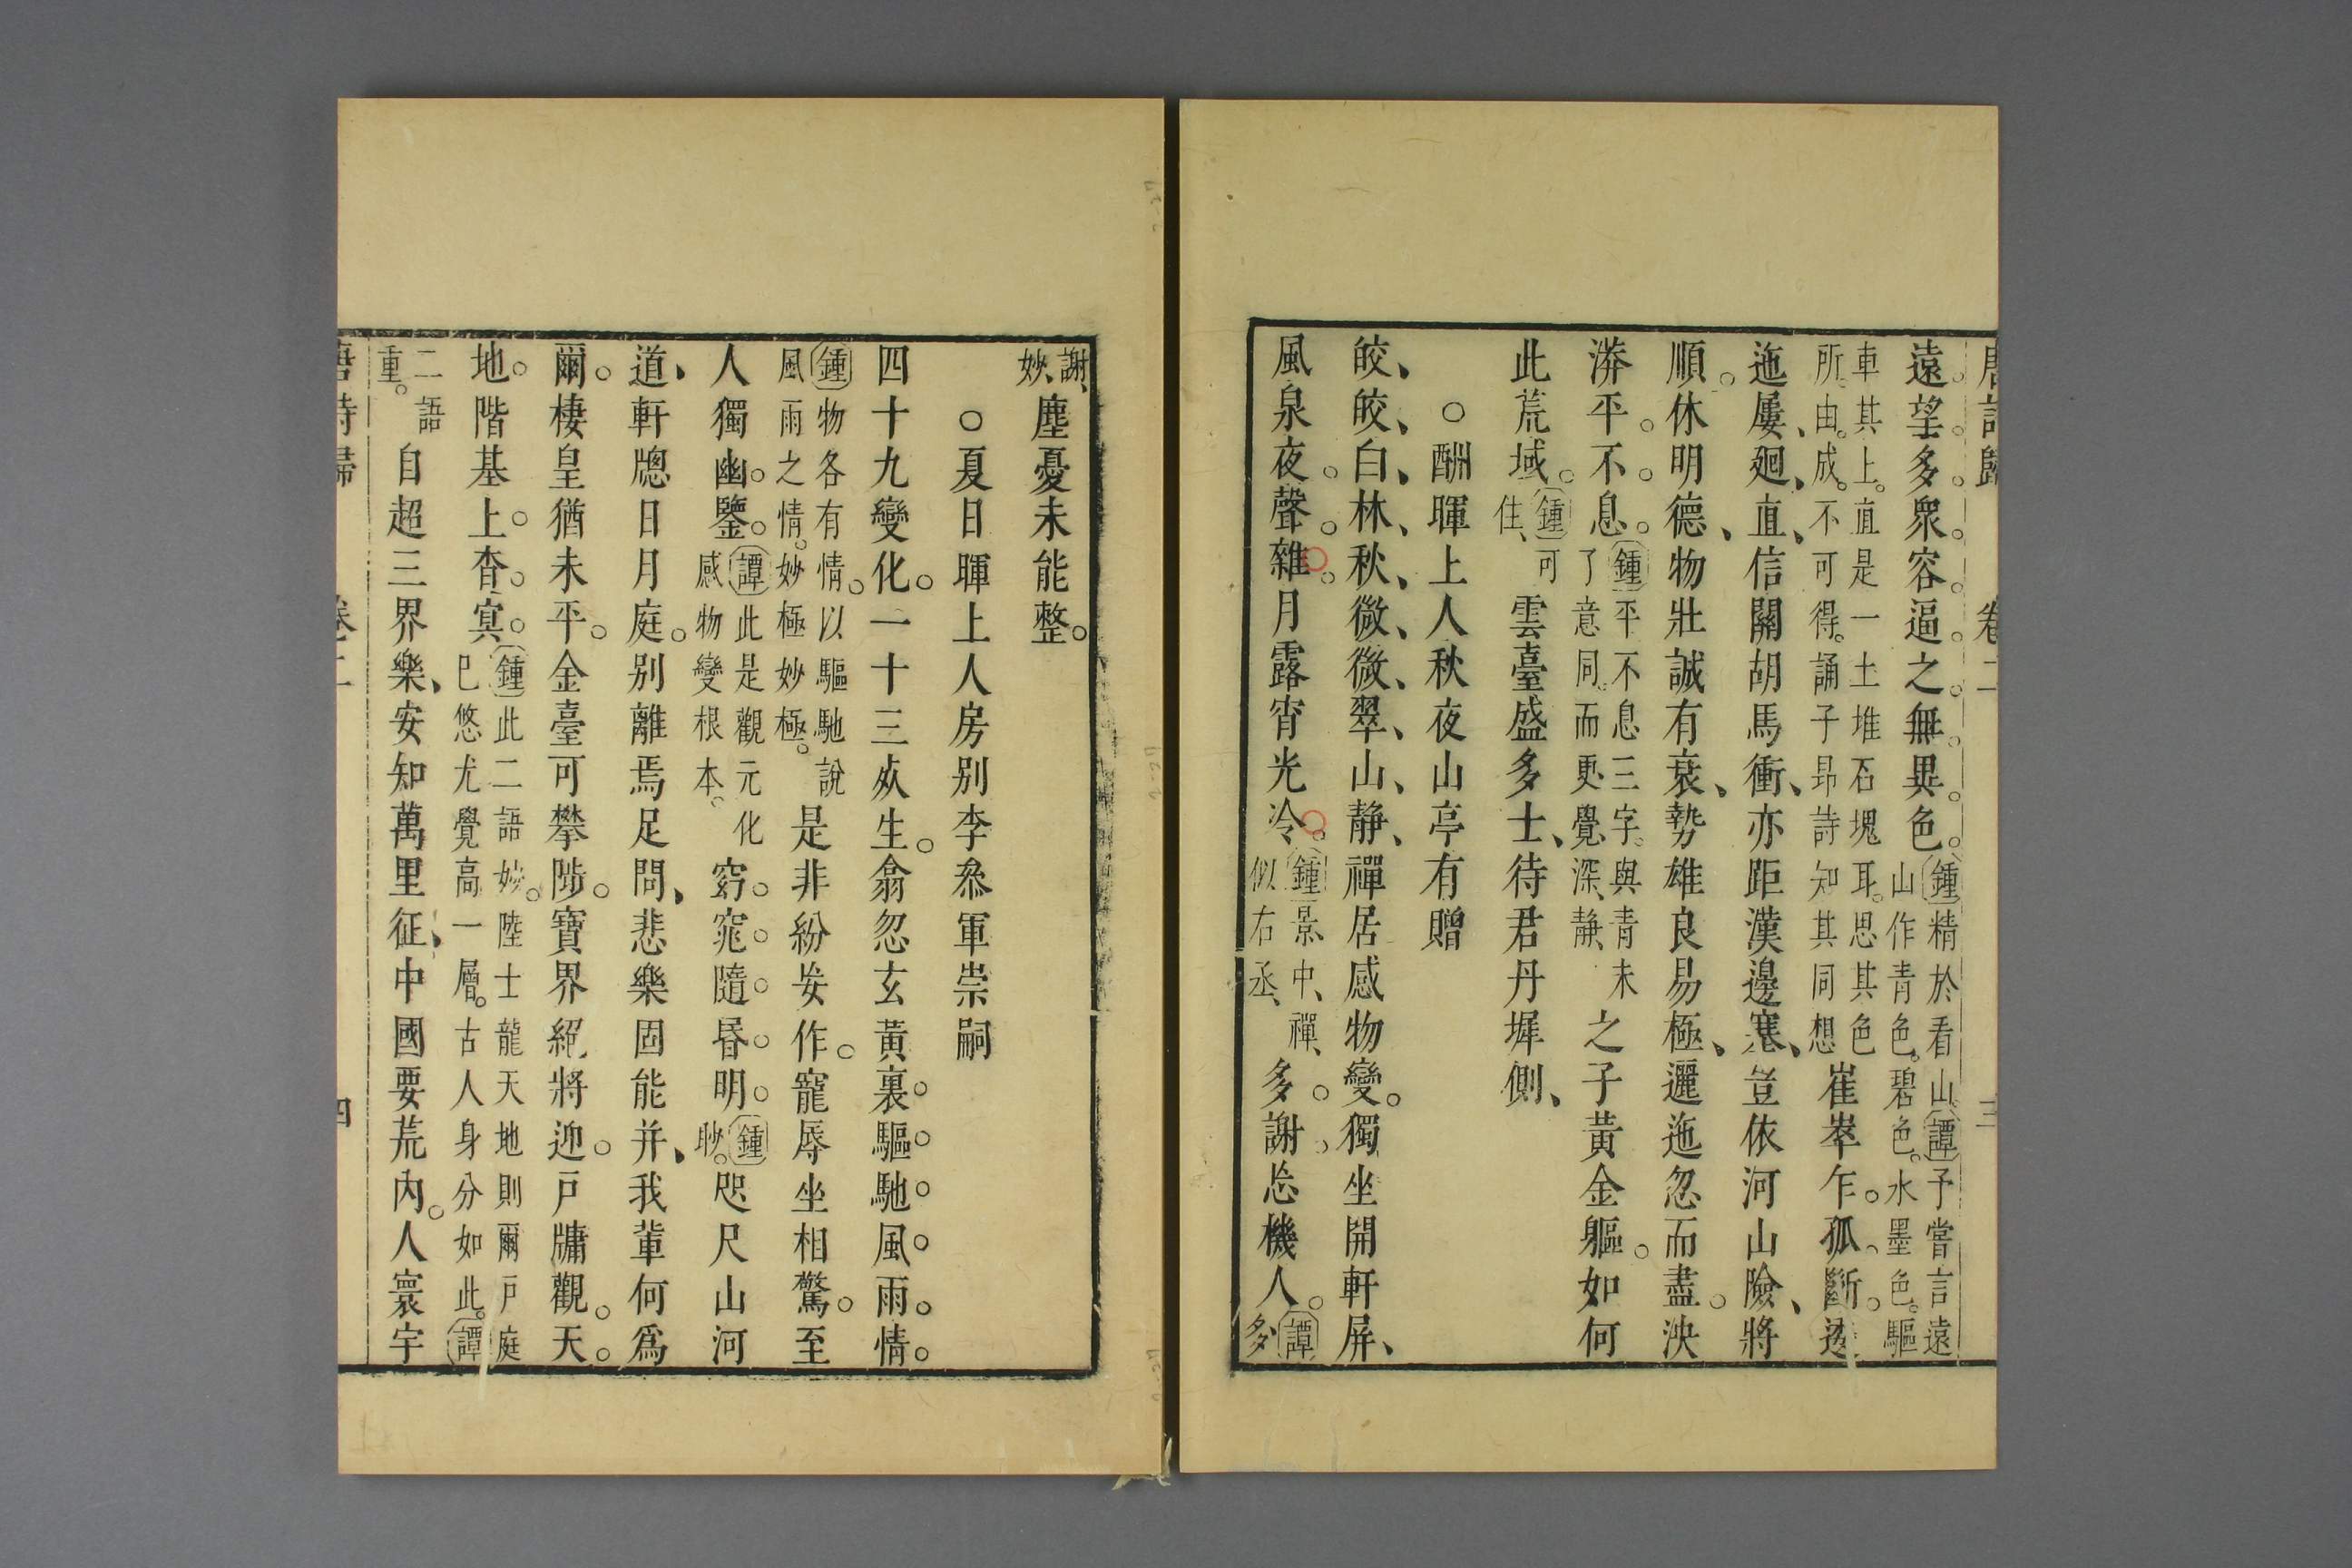 唐詩歸 卷二 三
遠望多衆容逼之無異色鍾精於看山譚予嘗言遠山作青色碧色水墨色驅
車其上直是一土堆石塊耳思其色所由成不可得誦子昻詩知其同想崔崒乍孤斷逶
迤屢廻直信關胡馬衝亦距漢邊塞豈依河山險將
順休明德物壯誠有衰勢雄良易極邐迤忽而盡泱
漭平不息鍾平不息三字與青未了意同而更覺深靜之子黃金軀如何
此荒域鍾可住雲臺盛多士待君丹墀側
○酬暉上人秋夜山亭有贈
皎皎白林秋微微翠山靜禪居感物變獨坐開軒屏
風泉夜聲雜月露宵光冷鍾景中禪似右丞多謝忘機人譚多
謝妙塵憂未能整
○夏日暉上人房别李叅軍崇嗣
四十九變化一十三死生翕忽玄黃裏驅馳風雨情
鍾物各有情以驅馳說風雨之情妙極妙極是非紛妄作寵辱坐相驚至
人獨幽鑒譚此是觀元化感物變根本窈窕隨昏明鍾眇咫尺山河
道軒牕日月庭别離焉足問悲樂固能并我輩何爲
爾棲皇猶未平金臺可攀陟寶界絕將迎戸牖觀天
地階基上杳冥鍾此二語妙陸士龍天地則爾戸庭已悠尤覺高一層古人身分如此譚
二語重自超三界樂安知萬里征中國要荒内人寰宇
唐詩歸 卷二 四